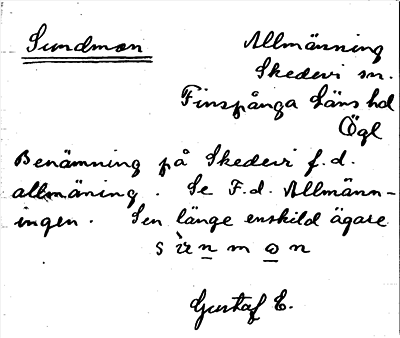 Sundmon
Allmänning
Skedevi sn.
Finspånga Läns hd
Ögl
Benämning på Skedevi f.d.
allmäning. Se F.d. Allmänn-
ingen. Sen länge enskild ägare.
Gustaf E.